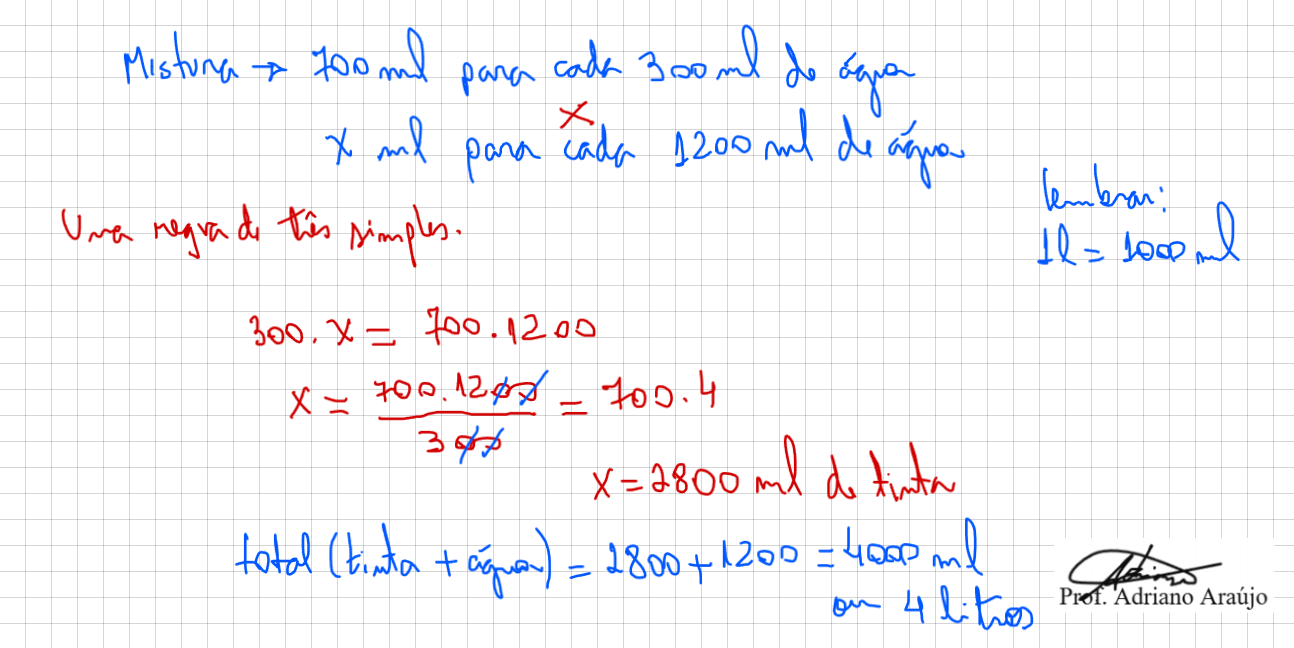 Mistura → 700 ml para cada 300 ml de água
x ml para cada 1200 ml de água
lembrar:
1l = 1000 ml
Uma regra de três simples.
300 . x = 700 . 1200
x = 700 . 1200 / 300 = 700 . 4
x = 2800 ml de tinta
total (tinta + água) = 2800 + 1200 = 4000 ml
ou 4 litros
Adriano
Prof. Adriano Araújo